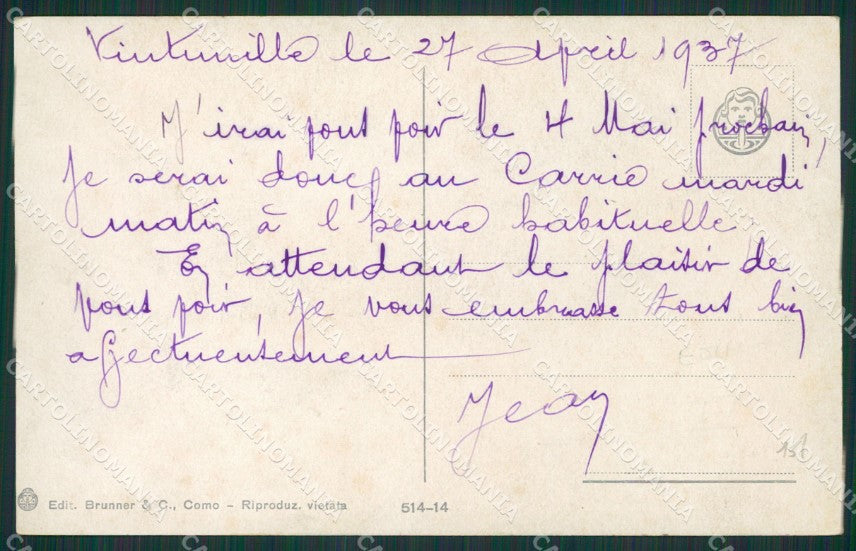 Vintimille le 27 April 1937
J'irai vous voir le 4 Mai prochain,
Je serai donc au Carrie mardi
matin à l'heure habituelle
En attendant le plaisir de
vous voir, je vous embrasse tous bien
affectueusement
Jean
151
Edit. Brunner & C., Como – Riproduz. vietata 514-14
CARTOLINOMANIA